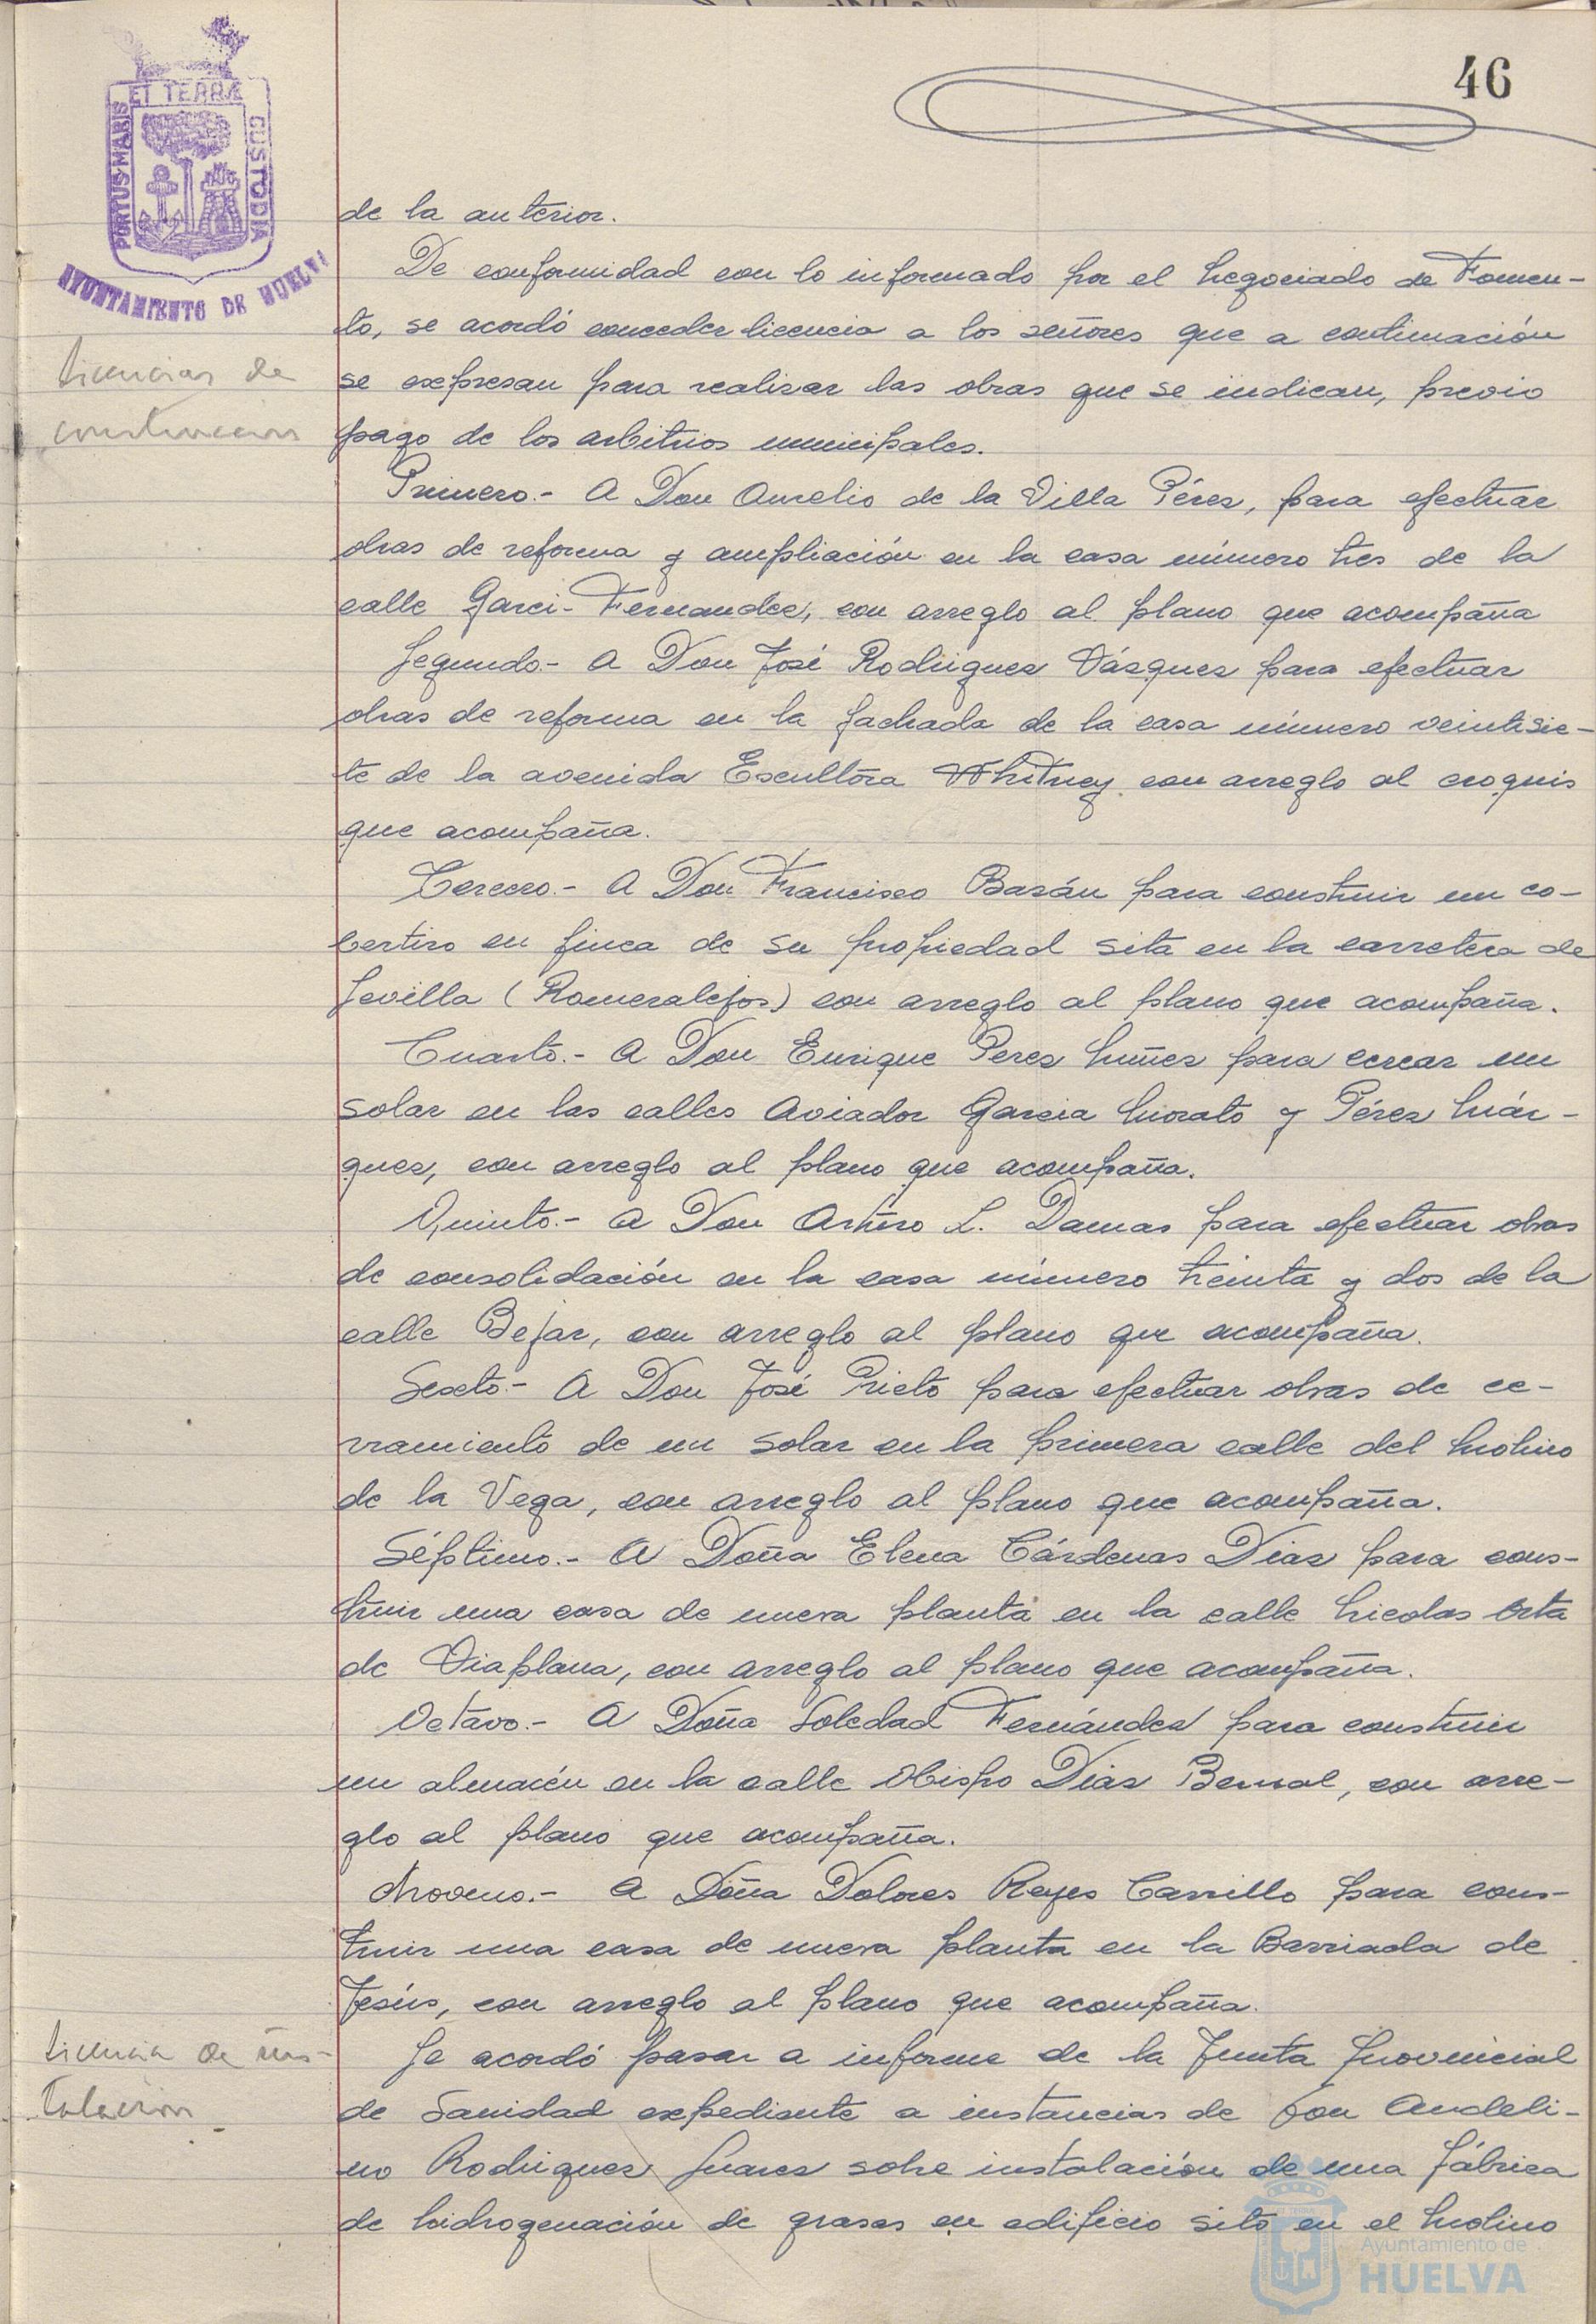 46
ET TERRÆ
PORTUS MARIS
CUSTODIA
AYUNTAMIENTO DE HUELVA
de la anterior.
De conformidad con lo informado por el Negociado de Fomen-
to, se acordó conceder licencia a los señores que a continuación
Licencias de
se expresan para realizar las obras que se indican, previo
construccion
pago de los arbitrios municipales.
Primero.- A Don Aurelio de la Villa Pérez, para efectuar
obras de reforma y ampliación en la casa número tres de la
calle Garci-Fernandez, con arreglo al plano que acompaña
Segundo.- A Don José Rodriguez Vázquez para efectuar
obras de reforma en la fachada de la casa número veintisie-
te de la avenida Escultora Whitney con arreglo al croquis
que acompaña.
Tercero.- A Don Francisco Bazán para construir un co-
bertizo en finca de su propiedad sita en la carretera de
Sevilla (Romeralejos) con arreglo al plano que acompaña.
Cuarto.- A Don Enrique Perez Nuñez para cercar un
solar en las calles Aviador Garcia Morato y Pérez Már-
quez, con arreglo al plano que acompaña.
Quinto.- A Don Arturo L. Damas para efectuar obras
de consolidación en la casa número treinta y dos de la
calle Bejar, con arreglo al plano que acompaña.
Sexto.- A Don José Prieto para efectuar obras de ce-
rramiento de un solar en la primera calle del Molino
de la Vega, con arreglo al plano que acompaña.
Séptimo.- A Doña Elena Cárdenas Diaz para cons-
truir una casa de nueva planta en la calle Nicolas Orta
de Viaplana, con arreglo al plano que acompaña.
Octavo.- A Doña Soledad Fernández para construir
un almacén en la calle Obispo Diaz Bernal, con arre-
glo al plano que acompaña.
Noveno.- A Doña Dolores Reyes Carrillo para cons-
truir una casa de nueva planta en la Barriada de
Jesús, con arreglo al plano que acompaña.
Licencia de ins-
Se acordó pasar a informe de la Junta Provincial
talación
de Sanidad expediente a instancias de Don Andeli-
no Rodriguez Suarez sobre instalación de una fábrica
de hidrogenación de grasas en edificio sito en el Molino
Ayuntamiento de
HUELVA